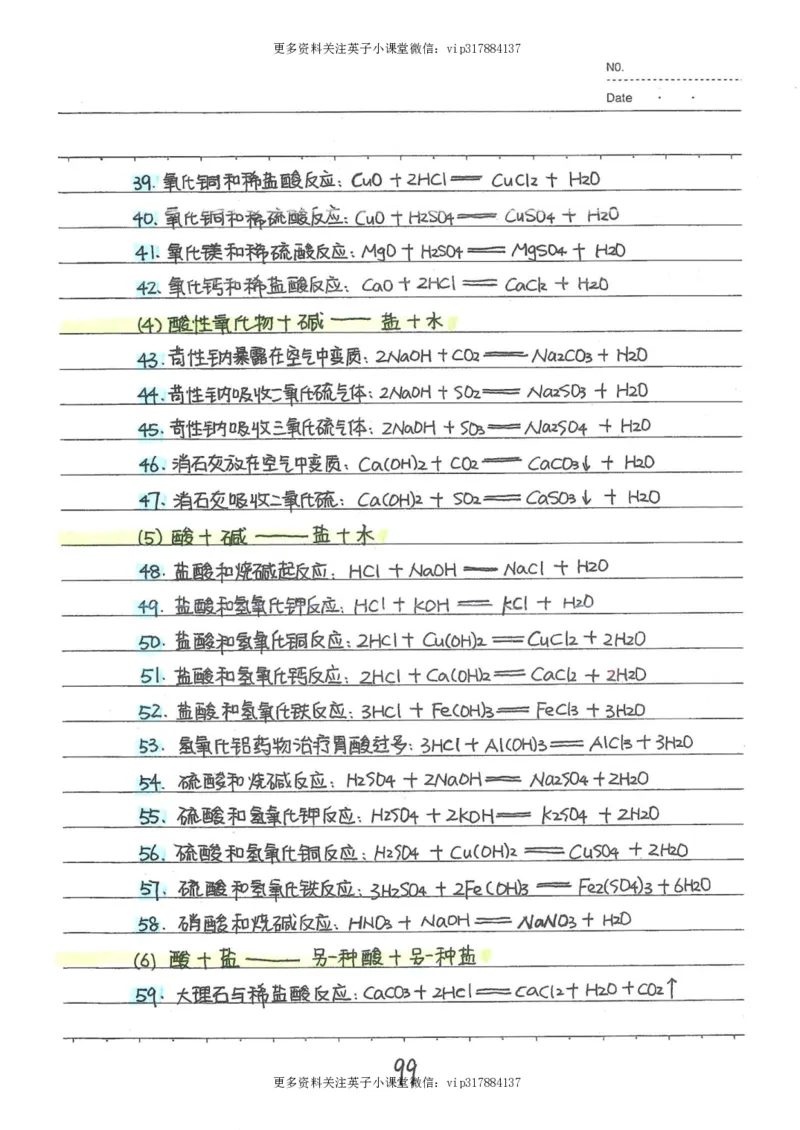 更多资料关注英子小课堂微信：vip317884137
NO.
Date
39. 氧化铜和稀盐酸反应：CuO + 2HCl══ CuCl2 + H2O
40. 氧化铜和稀硫酸反应：CuO + H2SO4══ CuSO4 + H2O
41. 氧化镁和稀硫酸反应：MgO + H2SO4══ MgSO4 + H2O
42. 氧化钙和稀盐酸反应：CaO + 2HCl══ CaCl2 + H2O
(4) 酸性氧化物+碱── 盐+水
43. 苛性钠暴露在空气中变质：2NaOH + CO2══ Na2CO3 + H2O
44. 苛性钠吸收二氧化硫气体：2NaOH + SO2══ Na2SO3 + H2O
45. 苛性钠吸收三氧化硫气体：2NaOH + SO3══ Na2SO4 + H2O
46. 消石灰放在空气中变质：Ca(OH)2 + CO2══ CaCO3↓ + H2O
47. 消石灰吸收二氧化硫：Ca(OH)2 + SO2══ CaSO3↓ + H2O
(5) 酸+碱──盐+水
48. 盐酸和烧碱起反应：HCl + NaOH══ NaCl + H2O
49. 盐酸和氢氧化钾反应：HCl + KOH══ KCl + H2O
50. 盐酸和氢氧化铜反应：2HCl + Cu(OH)2══ CuCl2 + 2H2O
51. 盐酸和氢氧化钙反应：2HCl + Ca(OH)2══ CaCl2 + 2H2O
52. 盐酸和氢氧化铁反应：3HCl + Fe(OH)3══ FeCl3 + 3H2O
53. 氢氧化铝药物治疗胃酸过多：3HCl + Al(OH)3══ AlCl3 + 3H2O
54. 硫酸和烧碱反应：H2SO4 + 2NaOH══ Na2SO4 + 2H2O
55. 硫酸和氢氧化钾反应：H2SO4 + 2KOH══ K2SO4 + 2H2O
56. 硫酸和氢氧化铜反应：H2SO4 + Cu(OH)2══ CuSO4 + 2H2O
57. 硫酸和氢氧化铁反应：3H2SO4 + 2Fe(OH)3══ Fe2(SO4)3 + 6H2O
58. 硝酸和烧碱反应：HNO3 + NaOH══ NaNO3 + H2O
(6) 酸+盐── 另一种酸+另一种盐
59. 大理石与稀盐酸反应：CaCO3 + 2HCl══ CaCl2 + H2O + CO2↑
99
更多资料关注英子小课堂微信：vip317884137